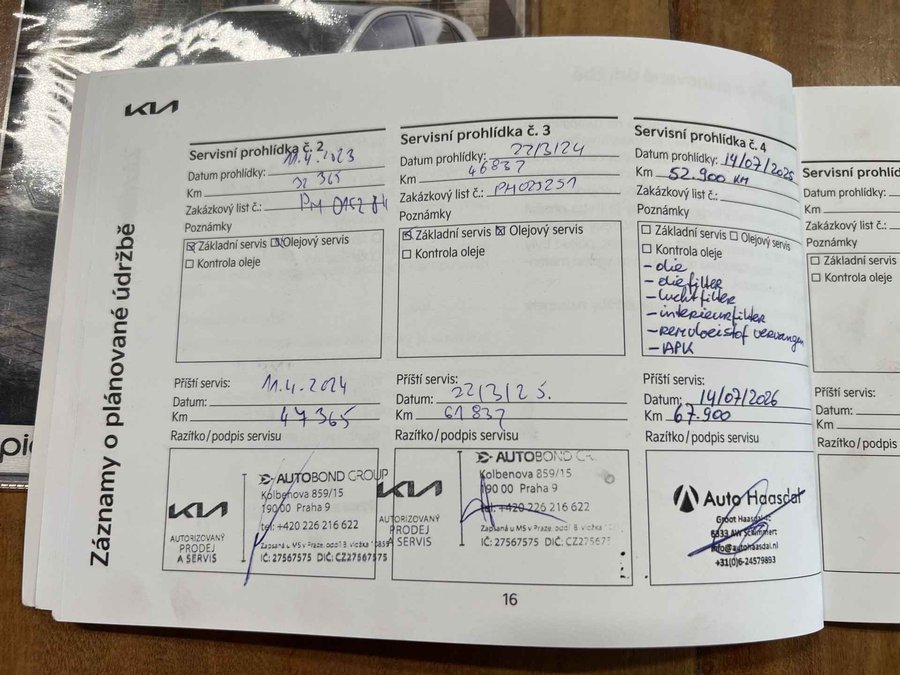 KIA
Záznamy o plánované údržbě
Servisní prohlídka č. 2
Datum prohlídky: 11.4.2023
Km 32 365
Zakázkový list č.:
Poznámky
Základní servis Olejový servis
Kontrola oleje
Příští servis: 11.4.2024
Datum:
Km 47365
Razítko/podpis servisu
KIA
AUTORIZOVANÝ
PRODEJ
A SERVIS
AUTOBOND GROUP
Kolbenova 859/15
190 00 Praha 9
tel: +420 226 216 622
Zapsaná u MS v Praze, oddíl B, vložka 10859
IČ: 27567575 DIČ: CZ27567575
Servisní prohlídka č. 3
Datum prohlídky: 22/3/24
Km 46837
Zakázkový list č.: PM023251
Poznámky
Základní servis Olejový servis
Kontrola oleje
Příští servis:
Datum: 22/3/25.
Km 61837
Razítko/podpis servisu
KIA
AUTORIZOVANÝ
PRODEJ
A SERVIS
AUTOBOND
Kolbenova 859/15
190 00 Praha 9
tel: +420 226 216 622
Zapsaná u MS v Praze, oddíl B, vložka
IČ: 27567575 DIČ: CZ27567575
Servisní prohlídka č. 4
Datum prohlídky: 14/07/2025
Km 52.900 KM
Zakázkový list č.:
Poznámky
Základní servis Olejový servis
Kontrola oleje
- olie
- oliefilter
- luchtfilter
- interieurfilter
- remvloeistof vervangen
- APK
Příští servis:
Datum: 14/07/2026
Km 67.900
Razítko/podpis servisu
Auto Haasdal
Groot Haasdal
6333 AW Schimmert
info@autohaasdal.nl
+31(0)6-24579893
Servisní prohlíd
Datum prohlídky:
Km
Zakázkový list č.:
Poznámky
Základní servis
Kontrola oleje
Příští servis:
Datum:
Km
Razítko/podpis
16